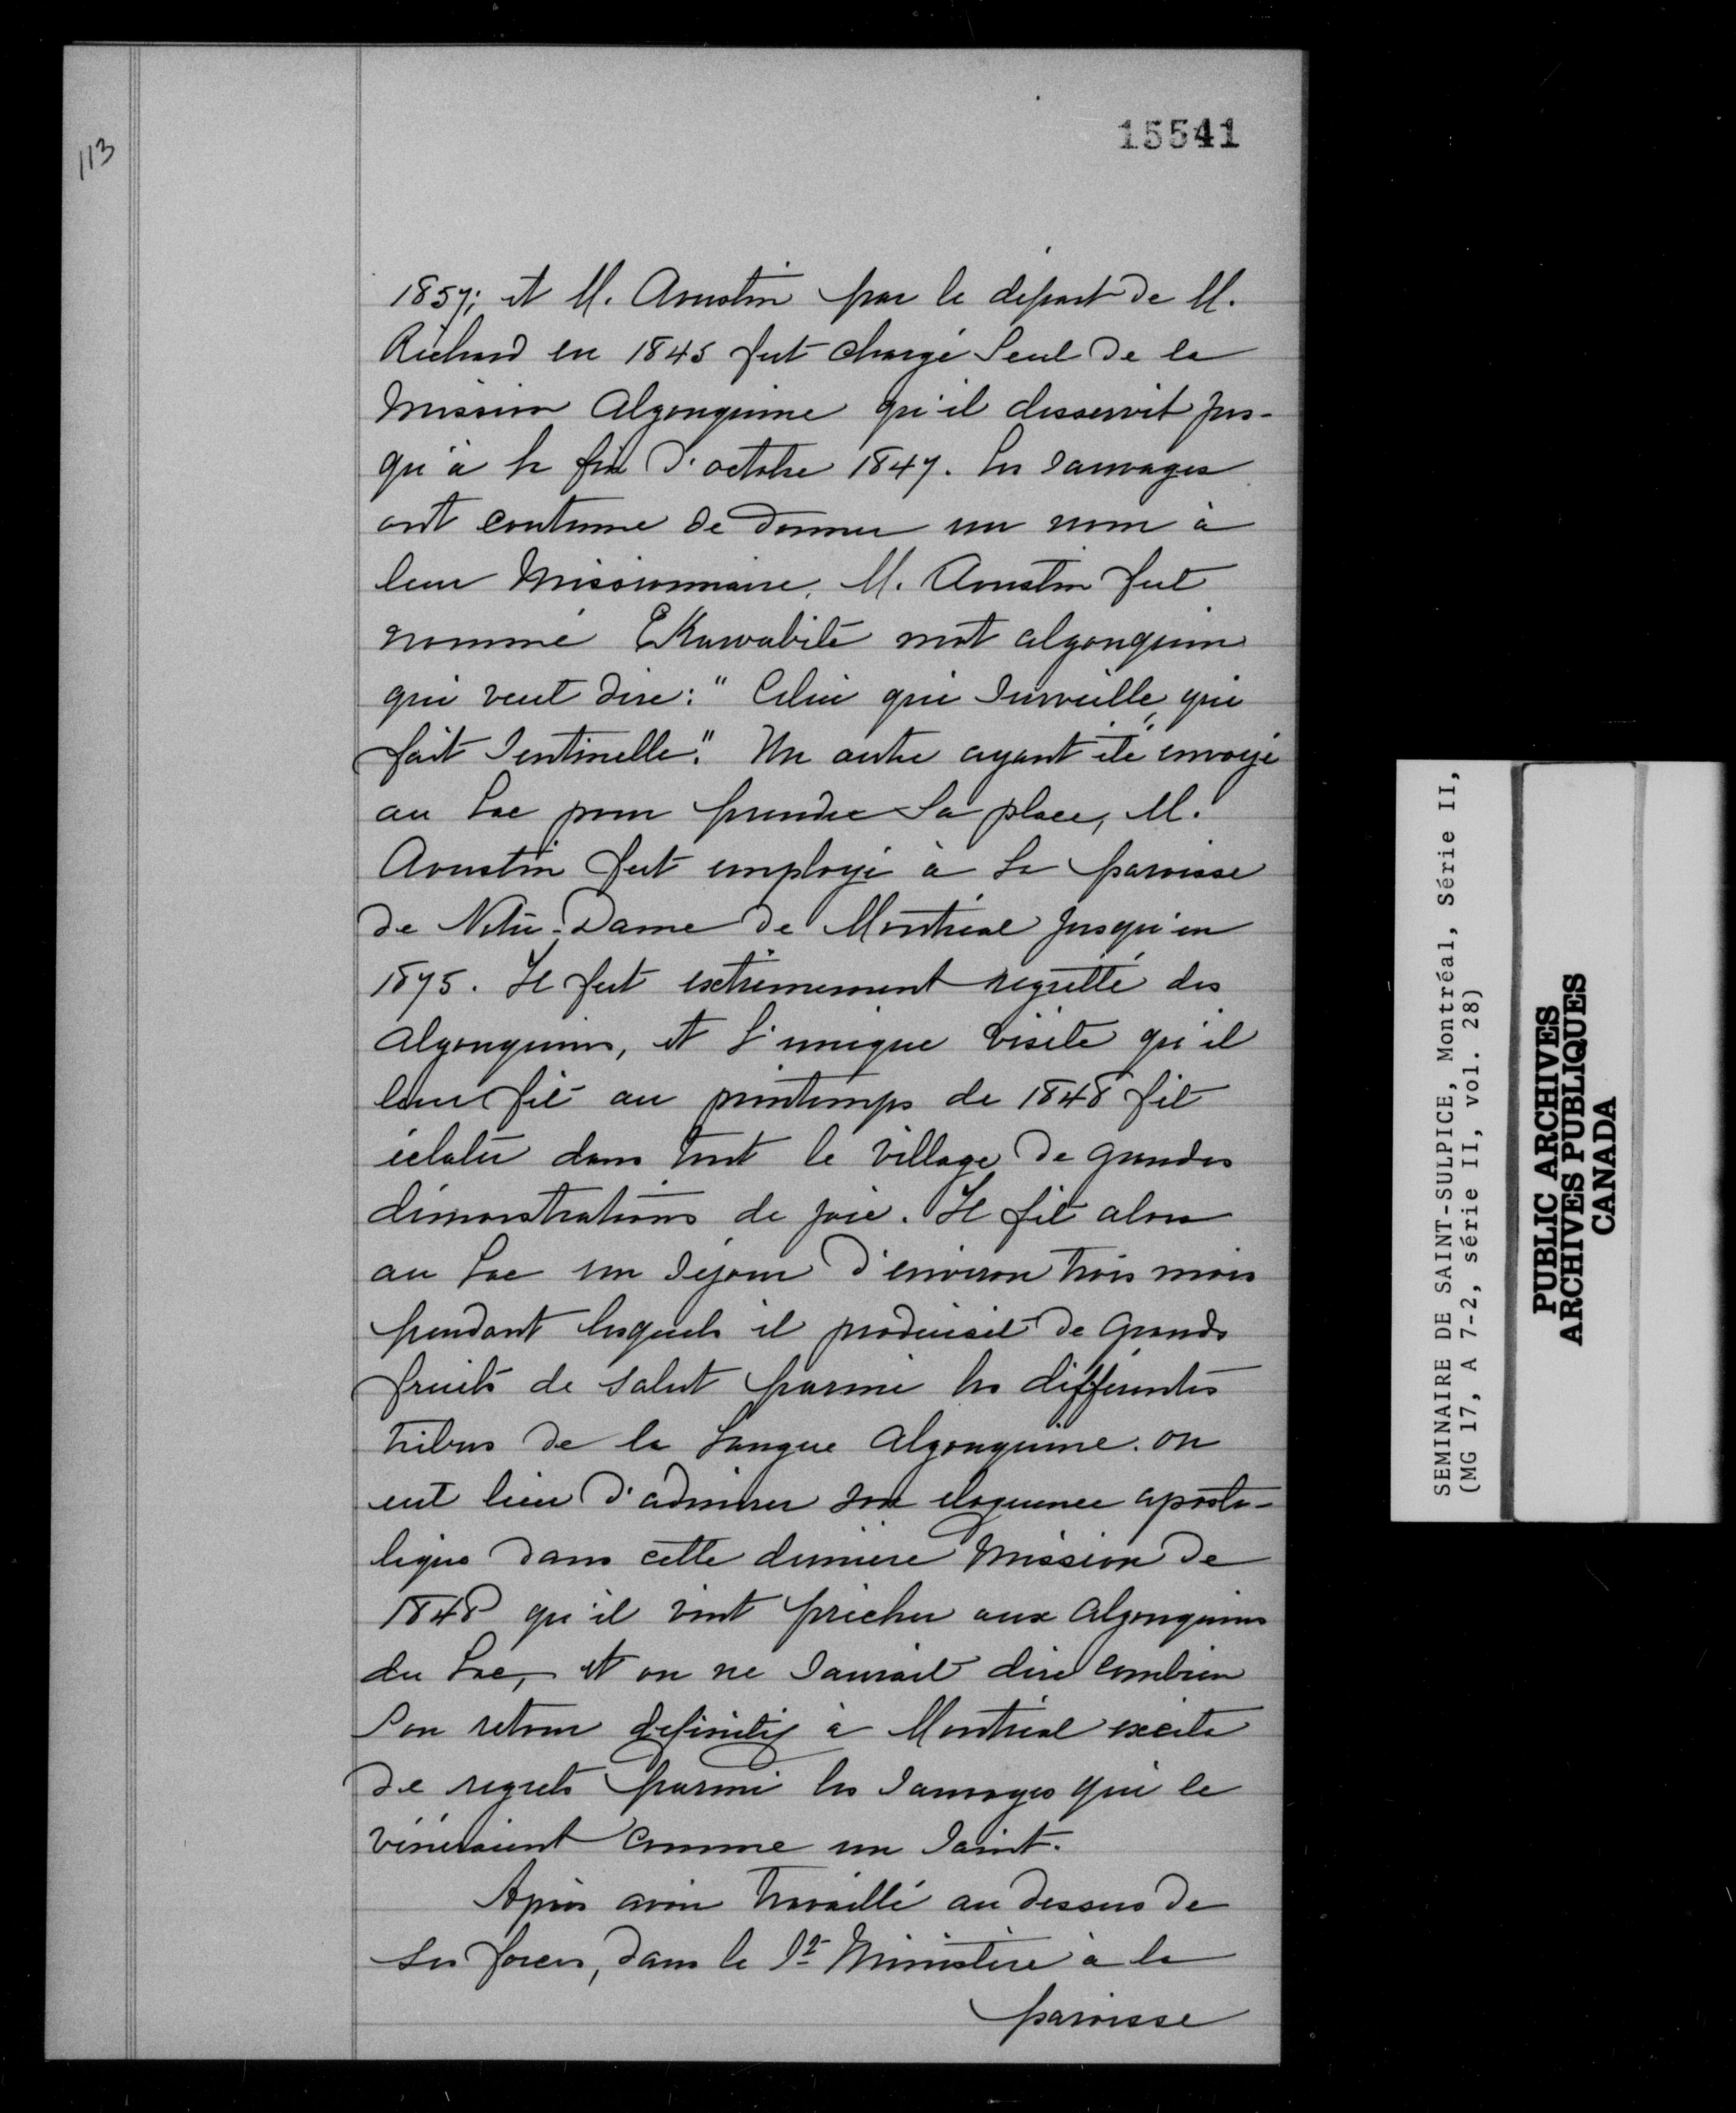 113
15541
1857; et M. Avustin par le départ de M.
Richard en 1845 fut chargé Seul de la
Mission Algonquine qu'il desservit jus-
qu'à la fin d'octobre 1847. Les Sauvages
ont coutume de donner un nom à
leur Missionnaire, M. Avustin fut
nommé EKawabité mot algonquin
qui veut dire: "Celui qui Surveille, qui
fait Sentinelle." Un autre ayant été envoyé
au Lac pour prendre Sa place, M.
Avustin fut employé à la paroisse
de Notre-Dame de Montréal jusqu'en
1875. Il fut extrêmement regretté des
Algonquins, et l'unique visite qu'il
leur fit au printemps de 1848 fit
éclater dans tout le village de grandes
démonstrations de joie. Il fit alors
au Lac un Séjour d'environ trois mois
pendant lesquels il produisit de grands
fruits de Salut parmi les différentes
tribus de la Langue Algonquine. on
eut lieu d'admirer son éloquence aposto-
lique dans cette dernière Mission de
1848 qu'il vint prêcher aux Algonquins
du Lac, et on ne Saurait dire combien
Son retour définitif à Montréal excita
de regrets parmi les Sauvages qui le
vénéraient comme un Saint.
Après avoir travaillé au dessus de
Ses forces, dans le St Ministère à la
paroisse
SEMINAIRE DE SAINT-SULPICE, Montréal, Série II,
(MG 17, A 7-2, série II, vol. 28)
PUBLIC ARCHIVES
ARCHIVES PUBLIQUES
CANADA